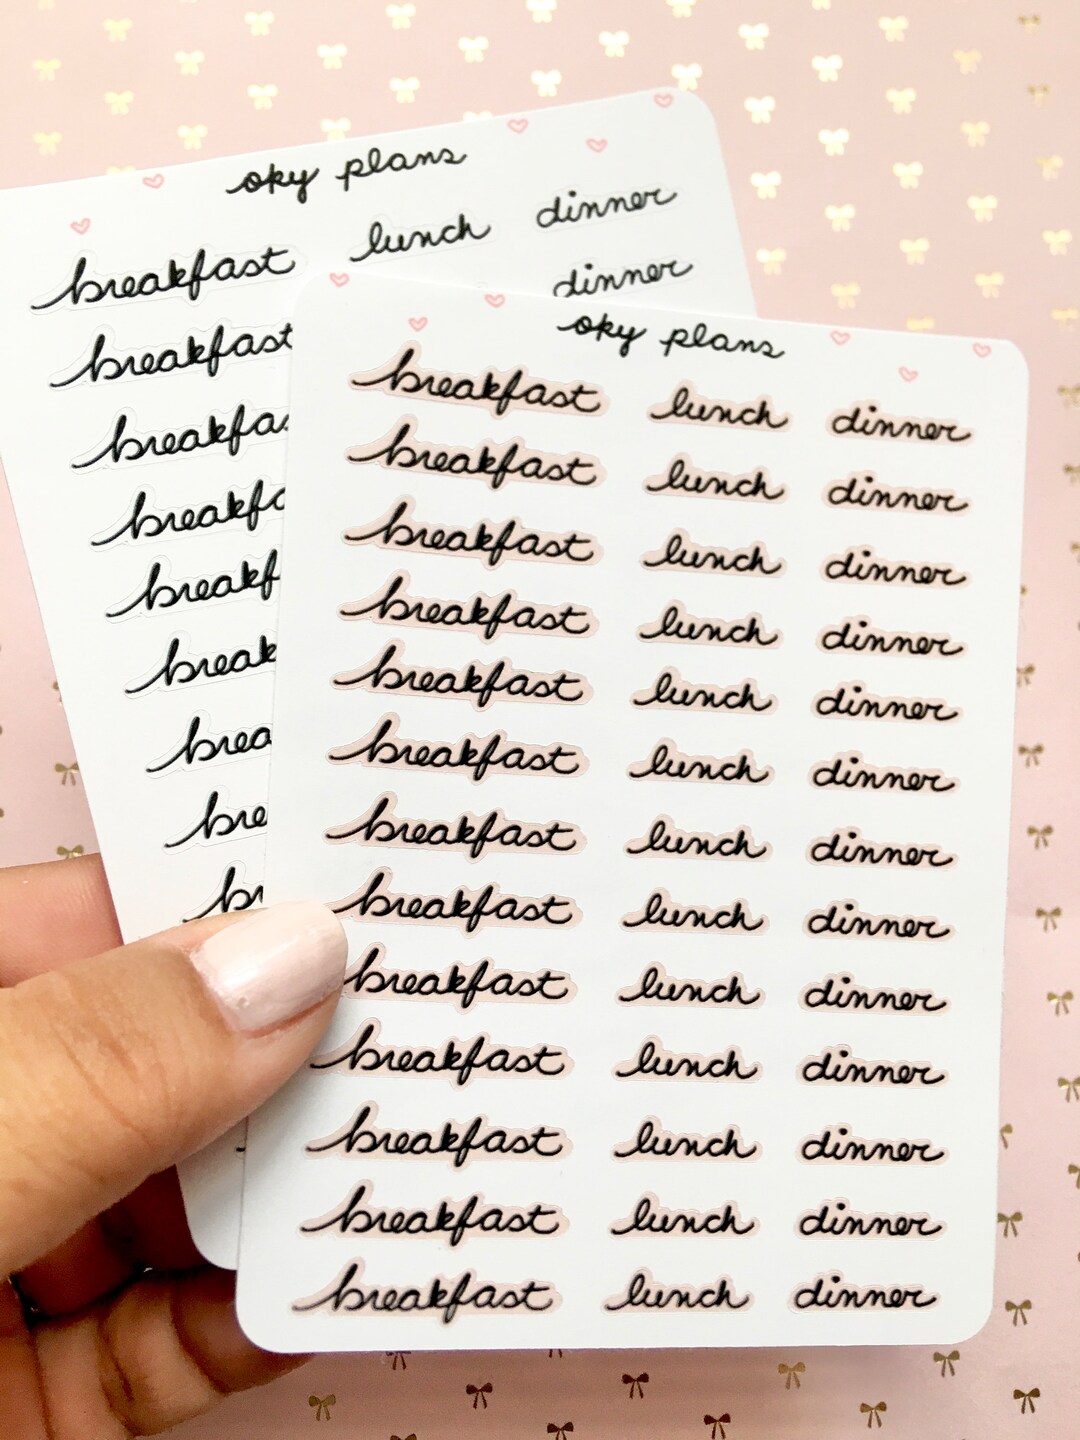 oky plans
breakfast lunch dinner
breakfast dinner
breakfas
breakfa
breakf
break
brea
bre
br
oky plans
breakfast lunch dinner
breakfast lunch dinner
breakfast lunch dinner
breakfast lunch dinner
breakfast lunch dinner
breakfast lunch dinner
breakfast lunch dinner
breakfast lunch dinner
breakfast lunch dinner
breakfast lunch dinner
breakfast lunch dinner
breakfast lunch dinner
breakfast lunch dinner